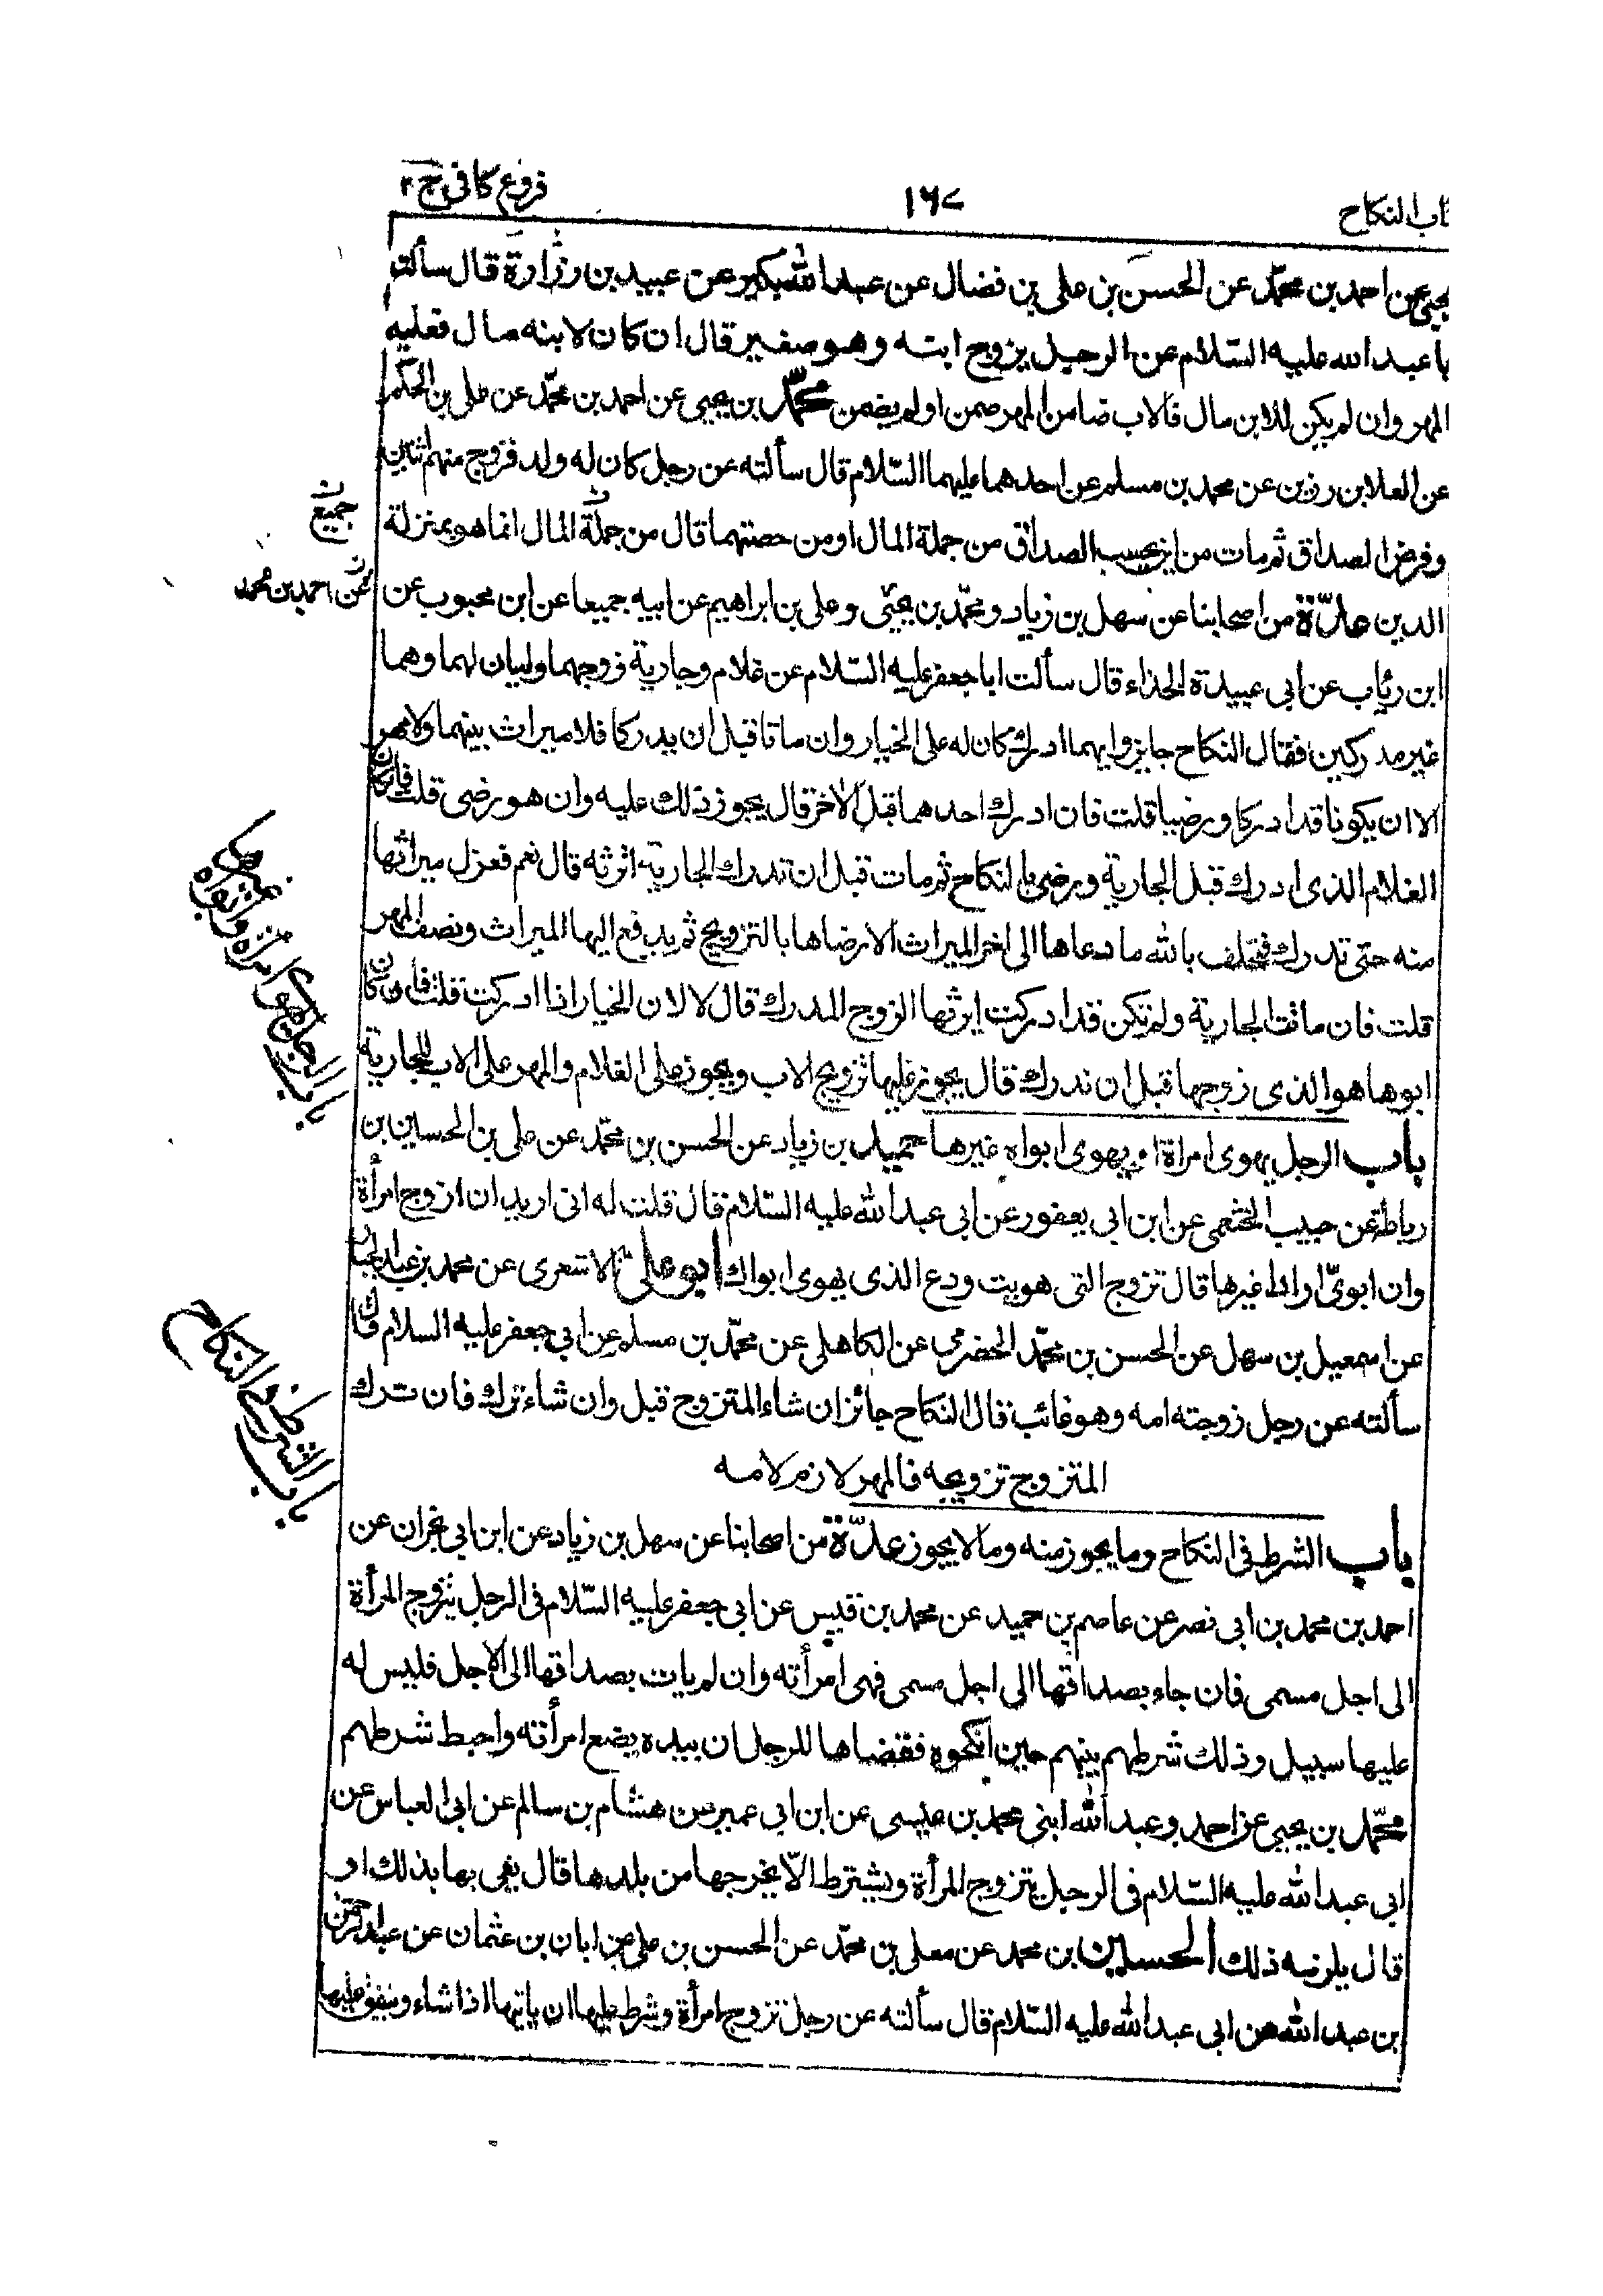 فروع كافى ج ٢
١٦٧
كتاب النكاح
يحيى عن احمد بن محمّد عن الحسن بن على بن فضال عن عبد الله بكير عن عبيد بن زرارة قال سألت
با عبد الله عليه السّلام عن الرجل يزوج ابنه وهو صغير قال ان كان لابنه مال فعليه
المهر وان لم يكن للابن مال فالاب ضامن المهر ضمن او لم يضمن محمّد بن يحيى عن احمد بن محمّد عن على بن الحكم
عن العلا بن رزين عن محمد بن مسلم عن احدهما عليهما السّلام قال سألته عن رجل كان له ولد فزوج منهم اثنين
وفرض الصداق ثم مات من اين يحسب الصداق من جملة المال او من حصتهما قال من جملة المال انما هو بمنزلة
جميع ن
الدين عدّة من اصحابنا عن سهل بن زياد و محمّد بن يحيى و على بن ابراهيم عن ابيه جميعا عن ابن محبوب عن
عن احمد بن محمد ن
ابن رئاب عن ابى عبيدة الحذاء قال سألت ابا جعفر عليه السّلام عن غلام وجارية زوجهما وليان لهما وهما
غير مدركين فقال النكاح جايز وايهما ادرك كان له على الخيار وان ماتا قبل ان يدركا فلا ميراث بينهما ولا مهر
الا ان يكونا قد ادركا ورضيا قلت فان ادرك احدهما قبل الاخر قال يجوز ذلك عليه وان هو رضى قلت فان كان
الغلام الذى ادرك قبل الجارية ورضى بالنكاح ثم مات قبل ان تدرك الجارية اترثه قال نعم فعزل ميراثها
منه حتى تدرك فتحلف بالله ما دعاها الى اخذ الميراث الا رضاها بالتزويج ثم يدفع اليها الميراث ونصف المهر
قلت فان ماتت الجارية ولم تكن قد ادركت ايرثها الزوج المدرك قال لا لان الخيار اذا ادركت قلت فان كان
ابوها هو الذى زوجها قبل ان تدرك قال يجوز عليها تزويج الاب ويجوز على الغلام والمهر على الاب للجارية
باب الرجل يهوى امراة ويهوى ابواه غيرها
باب الرجل يهوى امراة ويهوى ابواه غيرها حميد بن زياد عن الحسن بن محمّد عن على بن الحسين بن
رباط عن حبيب الخثعمى عن ابن ابى يعفور عن ابى عبد الله عليه السّلام قال قلت له انى اريد ان ازوج امرأة
وان ابوىّ ارادا غيرها قال تزوج التى هويت ودع الذى يهوى ابواك ابو على الاشعرى عن محمد بن عبد الجبار
عن اسمعيل بن سهل عن الحسن بن محمّد الحضرمى عن الكاهلى عن محمّد بن مسلم عن ابى جعفر عليه السلام قال
سألته عن رجل زوجته امه وهو غائب قال النكاح جائز ان شاء المتزوج قبل وان شاء ترك فان ترك
المتزوج تزويجه فالمهر لازم لامه
باب الشرط فى النكاح
باب الشرط فى النكاح وما يجوز منه وما لا يجوز عدّة من اصحابنا عن سهل بن زياد عن ابن ابى نجران عن
احمد بن محمد بن ابى نصر عن عاصم بن حميد عن محمد بن قيس عن ابى جعفر عليه السّلام فى الرجل يتزوج المرأة
الى اجل مسمى فان جاء بصداقها الى اجل مسمى فهى امرأته وان لم يات بصداقها الى الاجل فليس له
عليها سبيل وذلك شرطهم بينهم حين انكحوه فقضاها للرجل ان بيده بضع امرأته واحبط شرطهم
محمّد بن يحيى عن احمد وعبد الله ابنى محمد بن عيسى عن ابن ابى عمير عن هشام بن سالم عن ابى العباس عن
ابى عبد الله عليه السّلام فى الرجل يتزوج المرأة ويشترط الّا يخرجها من بلدها قال يفى بها بذلك او
قال يلزمه ذلك الحسين بن محمد عن معلى بن محمّد عن الحسن بن على عن ابان بن عثمان عن عبد الرحمن
بن عبد الله عن ابى عبد الله عليه السّلام قال سألته عن رجل تزوج امرأة وشرط عليها ان ياتيها اذا شاء وينفق عليها